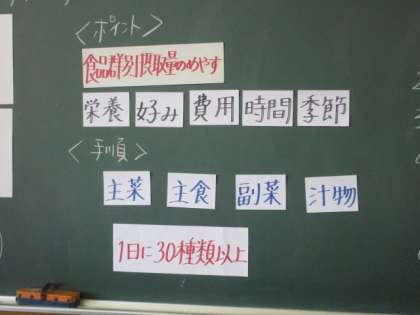 <ポイント>
食品群別摂取量のめやす
栄養 好み 費用 時間 季節
<手順>
主菜 主食 副菜 汁物
1日に30種類以上